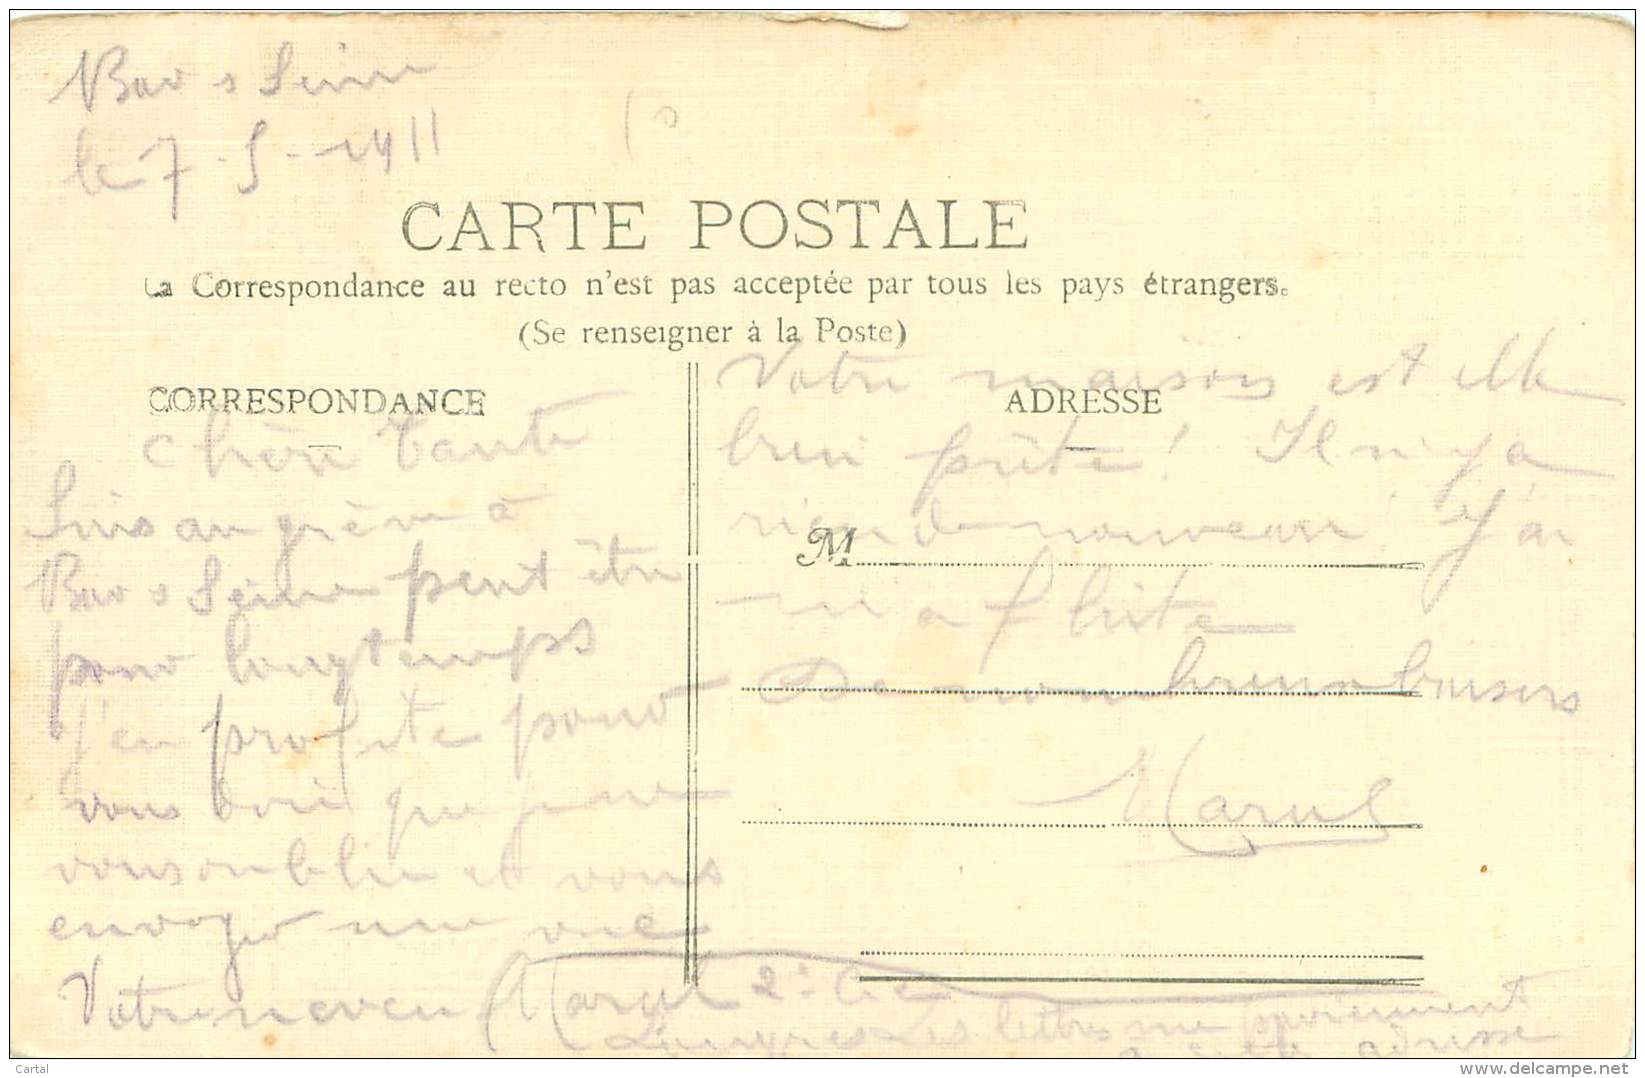 Bar s Seine
le 7-5-1911
CARTE POSTALE
La Correspondance au recto n'est pas acceptée par tous les pays étrangers.
(Se renseigner à la Poste)
CORRESPONDANCE
Chère Tante
Suis au grève à
Bar s Seine peut être
pour longtemps
j'en profite pour
vous que je ne
vous oublie et vous
envoyer une vue
Votre neveu Marcel
ADRESSE
Votre maison est elle
bien prête! Il n'y a
rien de nouveau! J'ai
ma flute
M
De nombreux baisers
Marcel
2e Cie
Langres Les lettres me parviennent
a cette adresse
Cartal
www.delcampe.net